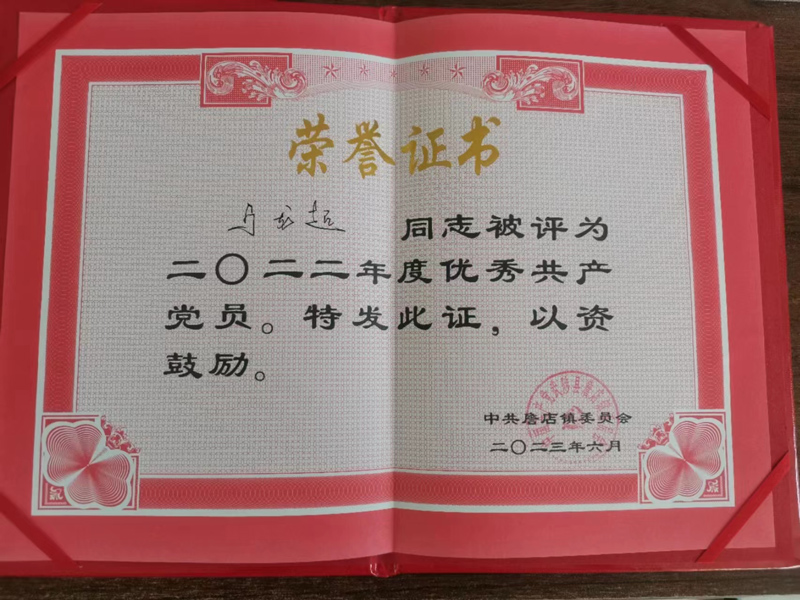 荣誉证书
马龙超 同志被评为
二〇二二年度优秀共产
党员。特发此证，以资
鼓励。
中共詹店镇委员会
二〇二三年六月